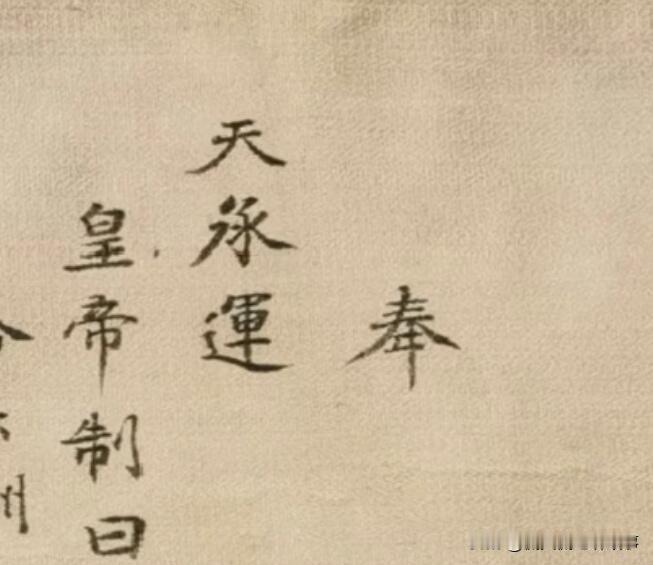 奉
天承運
皇帝制曰